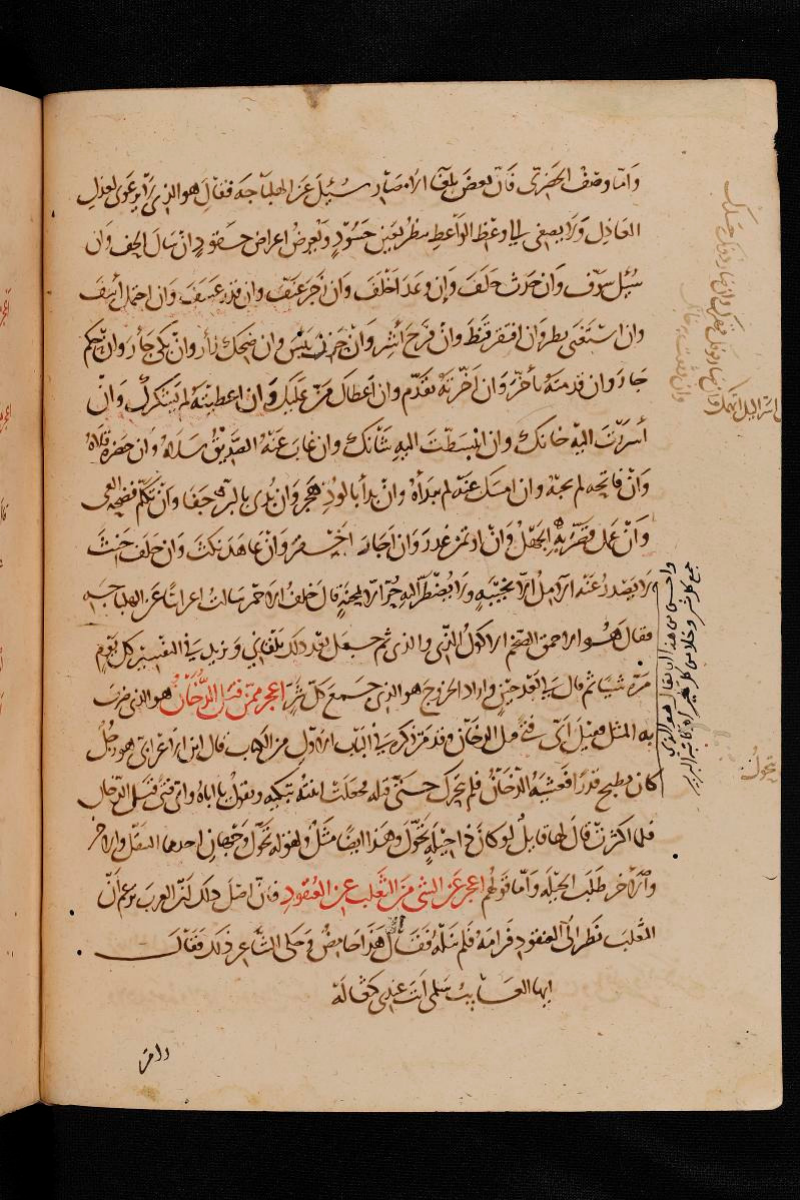 وأما وصف الحضرى فان بعض بلغا الامصار سئل عن الهلباجه فقال هو الذى لا يرعوى لعذل
العاذل ولا يصغى الى وعظ الواعظ ينظر بعين حسود ويعرض اعراض حقود ان سال الحف وان
سئل سوف وان حدث حلف وان وعد اخلف وان زجر عنف وان قدر عسف وان احتمل اسف
وان استغنى بطر وان افتقر قنط وان فرح أشر وان حزن يئس وان ضحك زأر وان بكى جأر وان حكم
جار وان قدمته تأخر وان اخرته تقدم وان اعطاك من عليك وان اعطيته لم يشكرك وان
أسررت اليه خانك وان انبسطت اليه شانك وان غاب عنه الصديق سلاه وان حضره قلاه
وان فاتحه لم يجبه وان امسك عنه لم يبدأه وان بدأ بالود هجر وان بدى بالبر جفا وان تكلم فضحه العى
وان عمل قصر به الجهل وان اوتمن غدر وان اجار اخفر وان عاهد نكث وان حلف حنث
لا يصدر عنه الامل الا بخيبه ولا يضطر اليه حر الا لمحنة قال خلف الاحمر سالت اعرابيا عن الهلباجه
فقال هو الاحمق الضخم الاكول الذى والذى ثم جعل بعد ذلك يلقانى ويزيد فى التفسير كل يوم
مرة شيا ثم قال لى بعد حين واراد الخروج هو الذى جمع كل شر اعجز ممن قتل الدخان هو الذى ضرب
به المثل فقيل اى فتى قتل الدخان وقد مر ذكره فى الباب الاول من الكتاب قال ابن الاعرابى هو رجل
كان يطبخ قدرا فغشيه الدخان فلم يتحرك حتى قتله فجعلت ابنته تبكيه وتقول يا اباه واى فتى قتل الدخان
فلما اكثرت قال لها قايل لو كان ذا حيلة تحول وهذا ايضا مثل ولقوله تحول وجهان احدهما التنقل والاخر
والآخر طلب الحيله وأما قولهم اعجز عن الشى من الثعلب عن العنقود فان اصل ذلك ان العرب تزعم ان
الثعلب نظر الى العنقود فرامه فلم ينله فقال هذا حامض وحكى الشاعر ذلك فقال
ايها العايب سلمى انت عندى كثعاله
رام